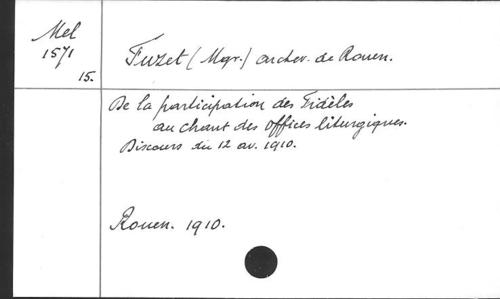 Mel
1571
15.
Fuzet (Mgr.) archev. de Rouen.
De la participation des Fidèles
au chant des offices liturgiques.
Discours du 12 av. 1910.
Rouen. 1910.